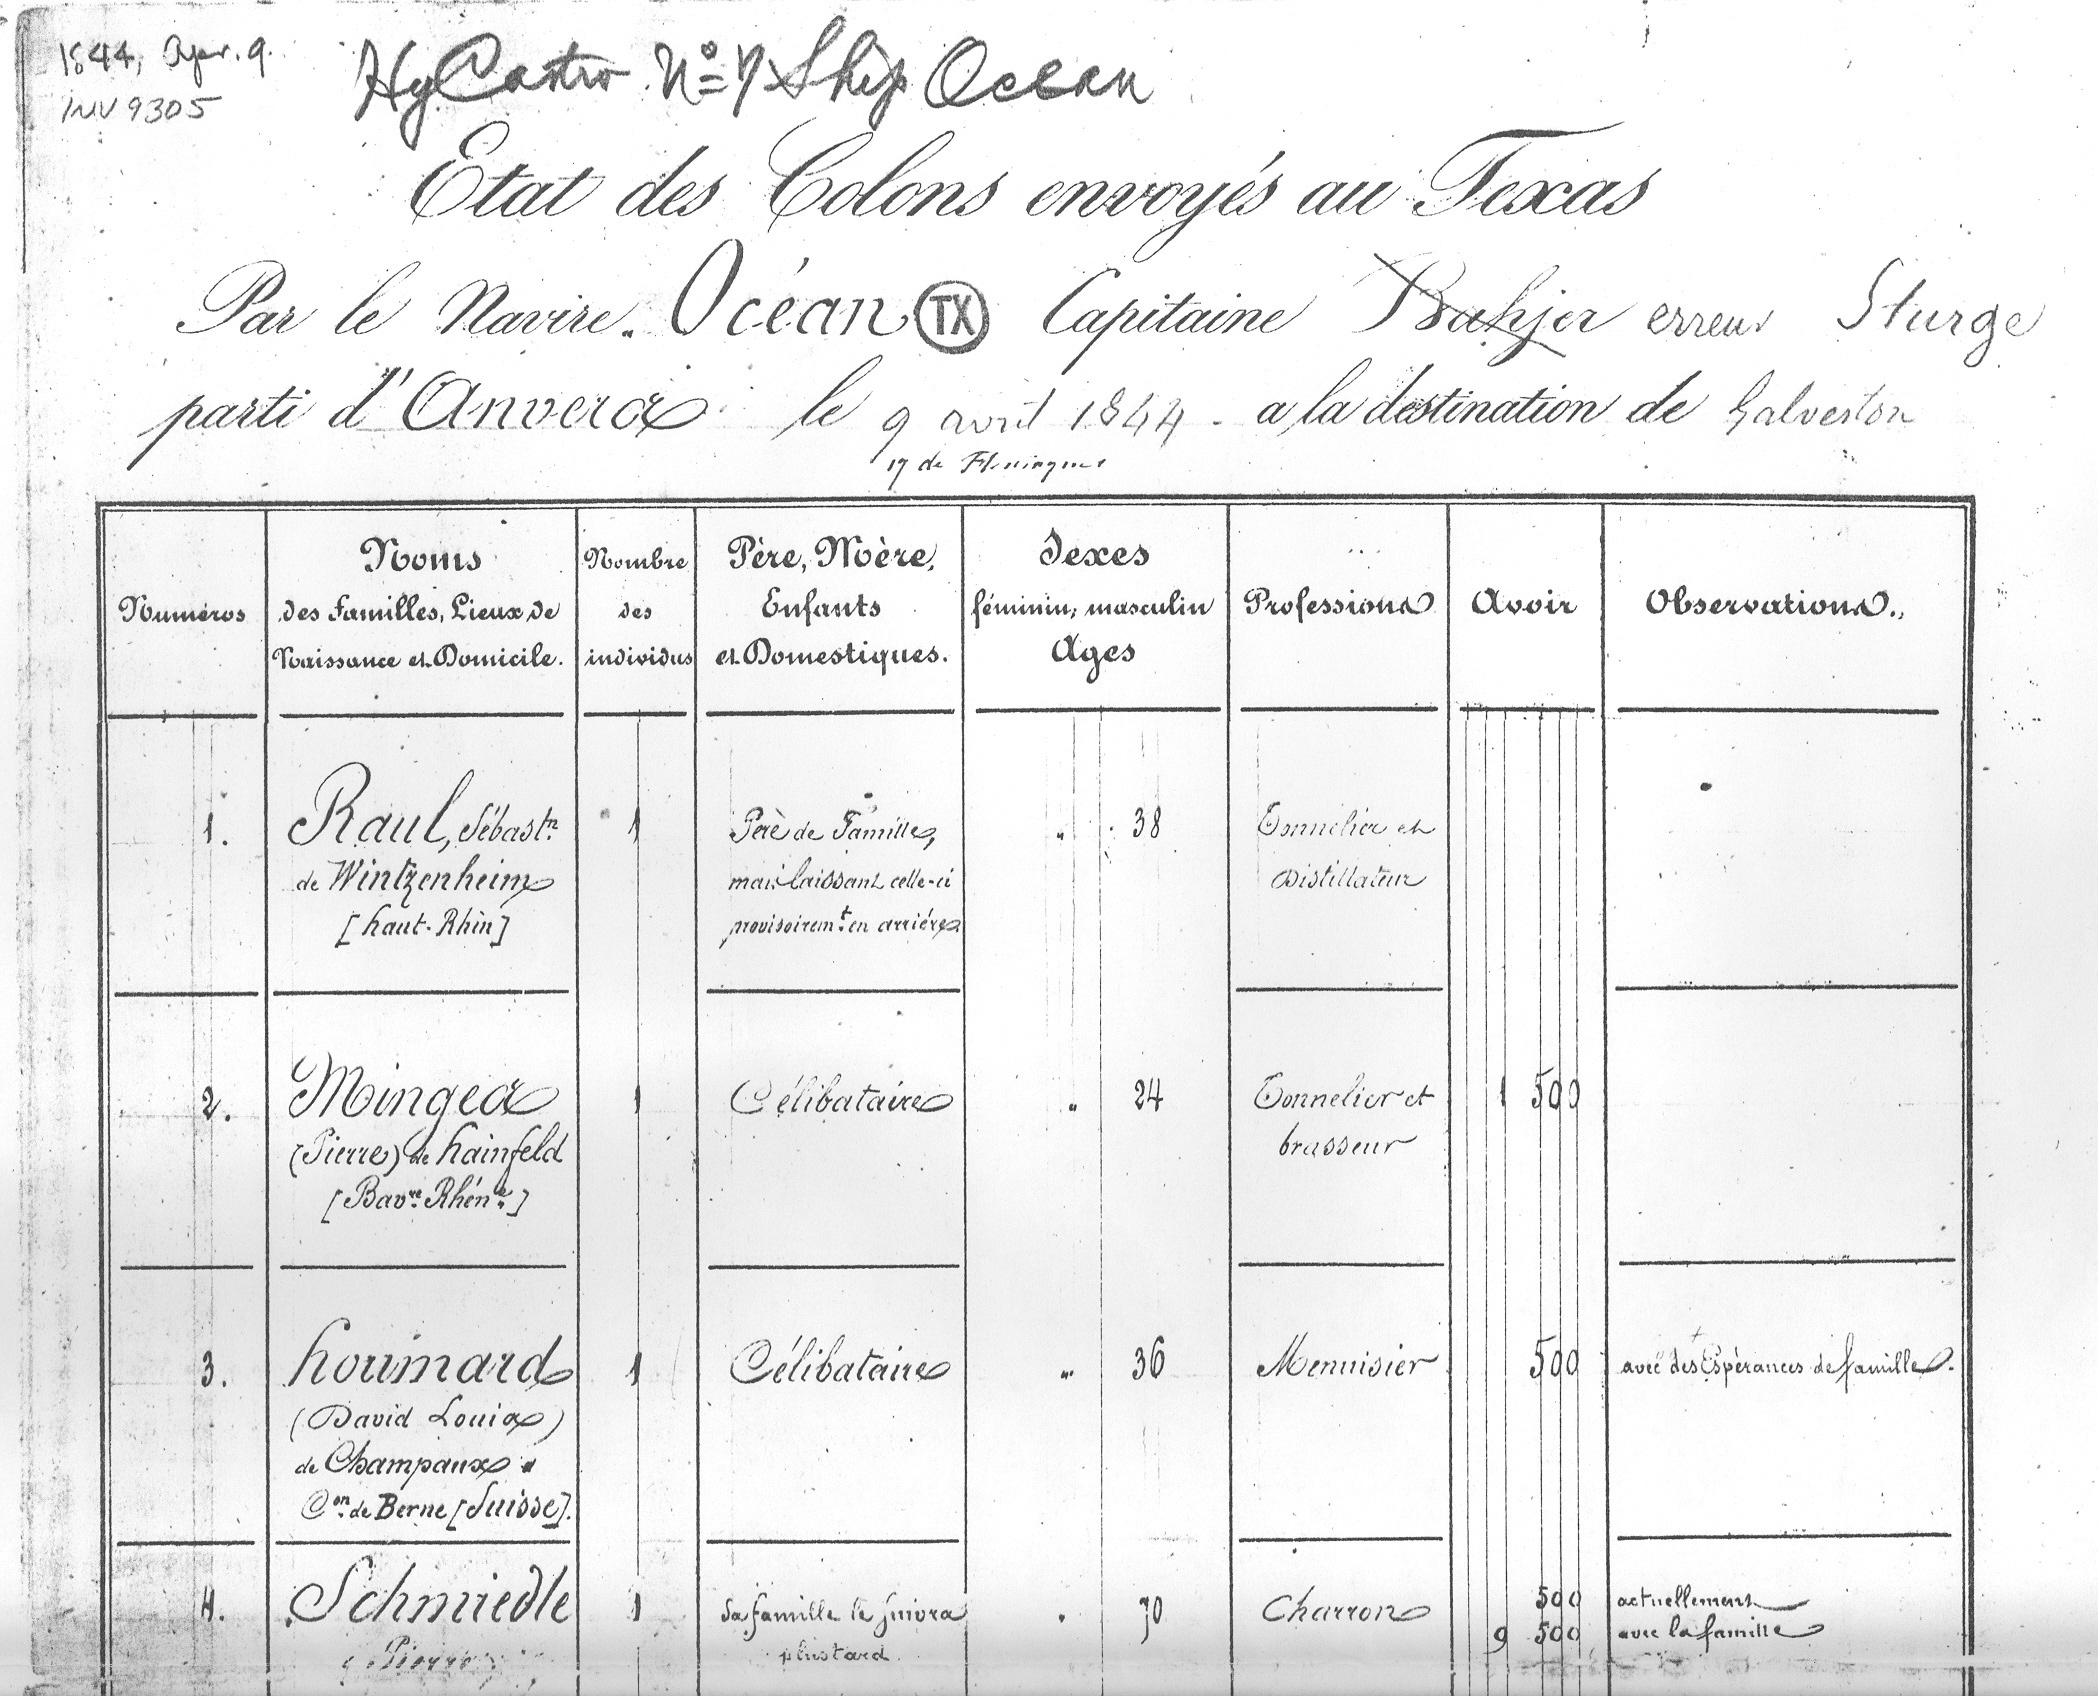 1844, Apr. 9.
INV 9305
Hy Castro Nº 7 Ship Ocean
Etat des Colons envoyés au Texas
Par le Navire Océan TX Capitaine erreur Sturge
parti d'Anvers le 9 avril 1844 - a la destination de Galveston
17 de
Numéros
Noms
des Familles, Lieux de
Naissance et Domicile.
Nombre
des
individus
Père, Mère,
Enfants
et Domestiques.
Sexes
féminin, masculin
Ages
Professions
Avoir
Observations.
1.
Raul, Sébastn
de Wintzenheim
[haut-Rhin]
1
Père de Famille,
mais laissant celle-ci
provisoiremt en arrière
" 38
Tonnelier et
Distillateur
2.
Minges
(Pierre) de hainfeld
[Bavre Rhéne]
1
Célibataire
" 24
Tonnelier et
brasseur
1 500
3.
houmard
(David Louis)
de Champaux
Con de Berne [Suisse].
1
Célibataire
" 36
Menuisier
500
avec des Espérances de famille.
4.
Schmiedle
Pierre
1
Sa famille le suivra
plus tard
" 70
Charron
500
9 500
actuellement
avec la famille